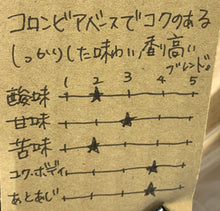 コロンビアベースでコクのある
しっかりした味わい香り高い
ブレンド。
1 2 3 4 5
酸味
甘味
苦味
コク・ボディ
あとあじ